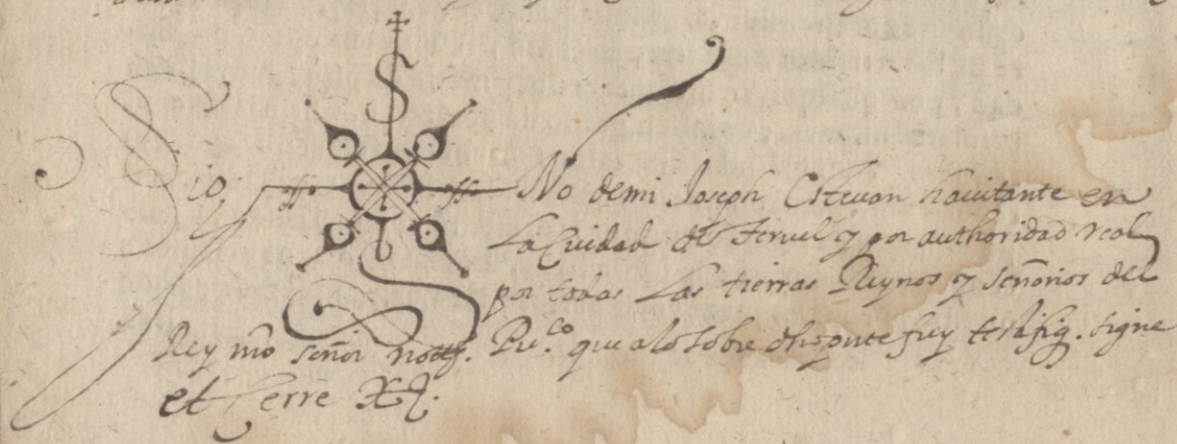 Sig No de mi Joseph Estevan havitante en
La Ciudad de Teruel y por authoridad real
por todas Las tierras Reynos y señorios del
Rey nro señor nott. Puco. que a lo sobre dho pnte fuy signe
et Cerre